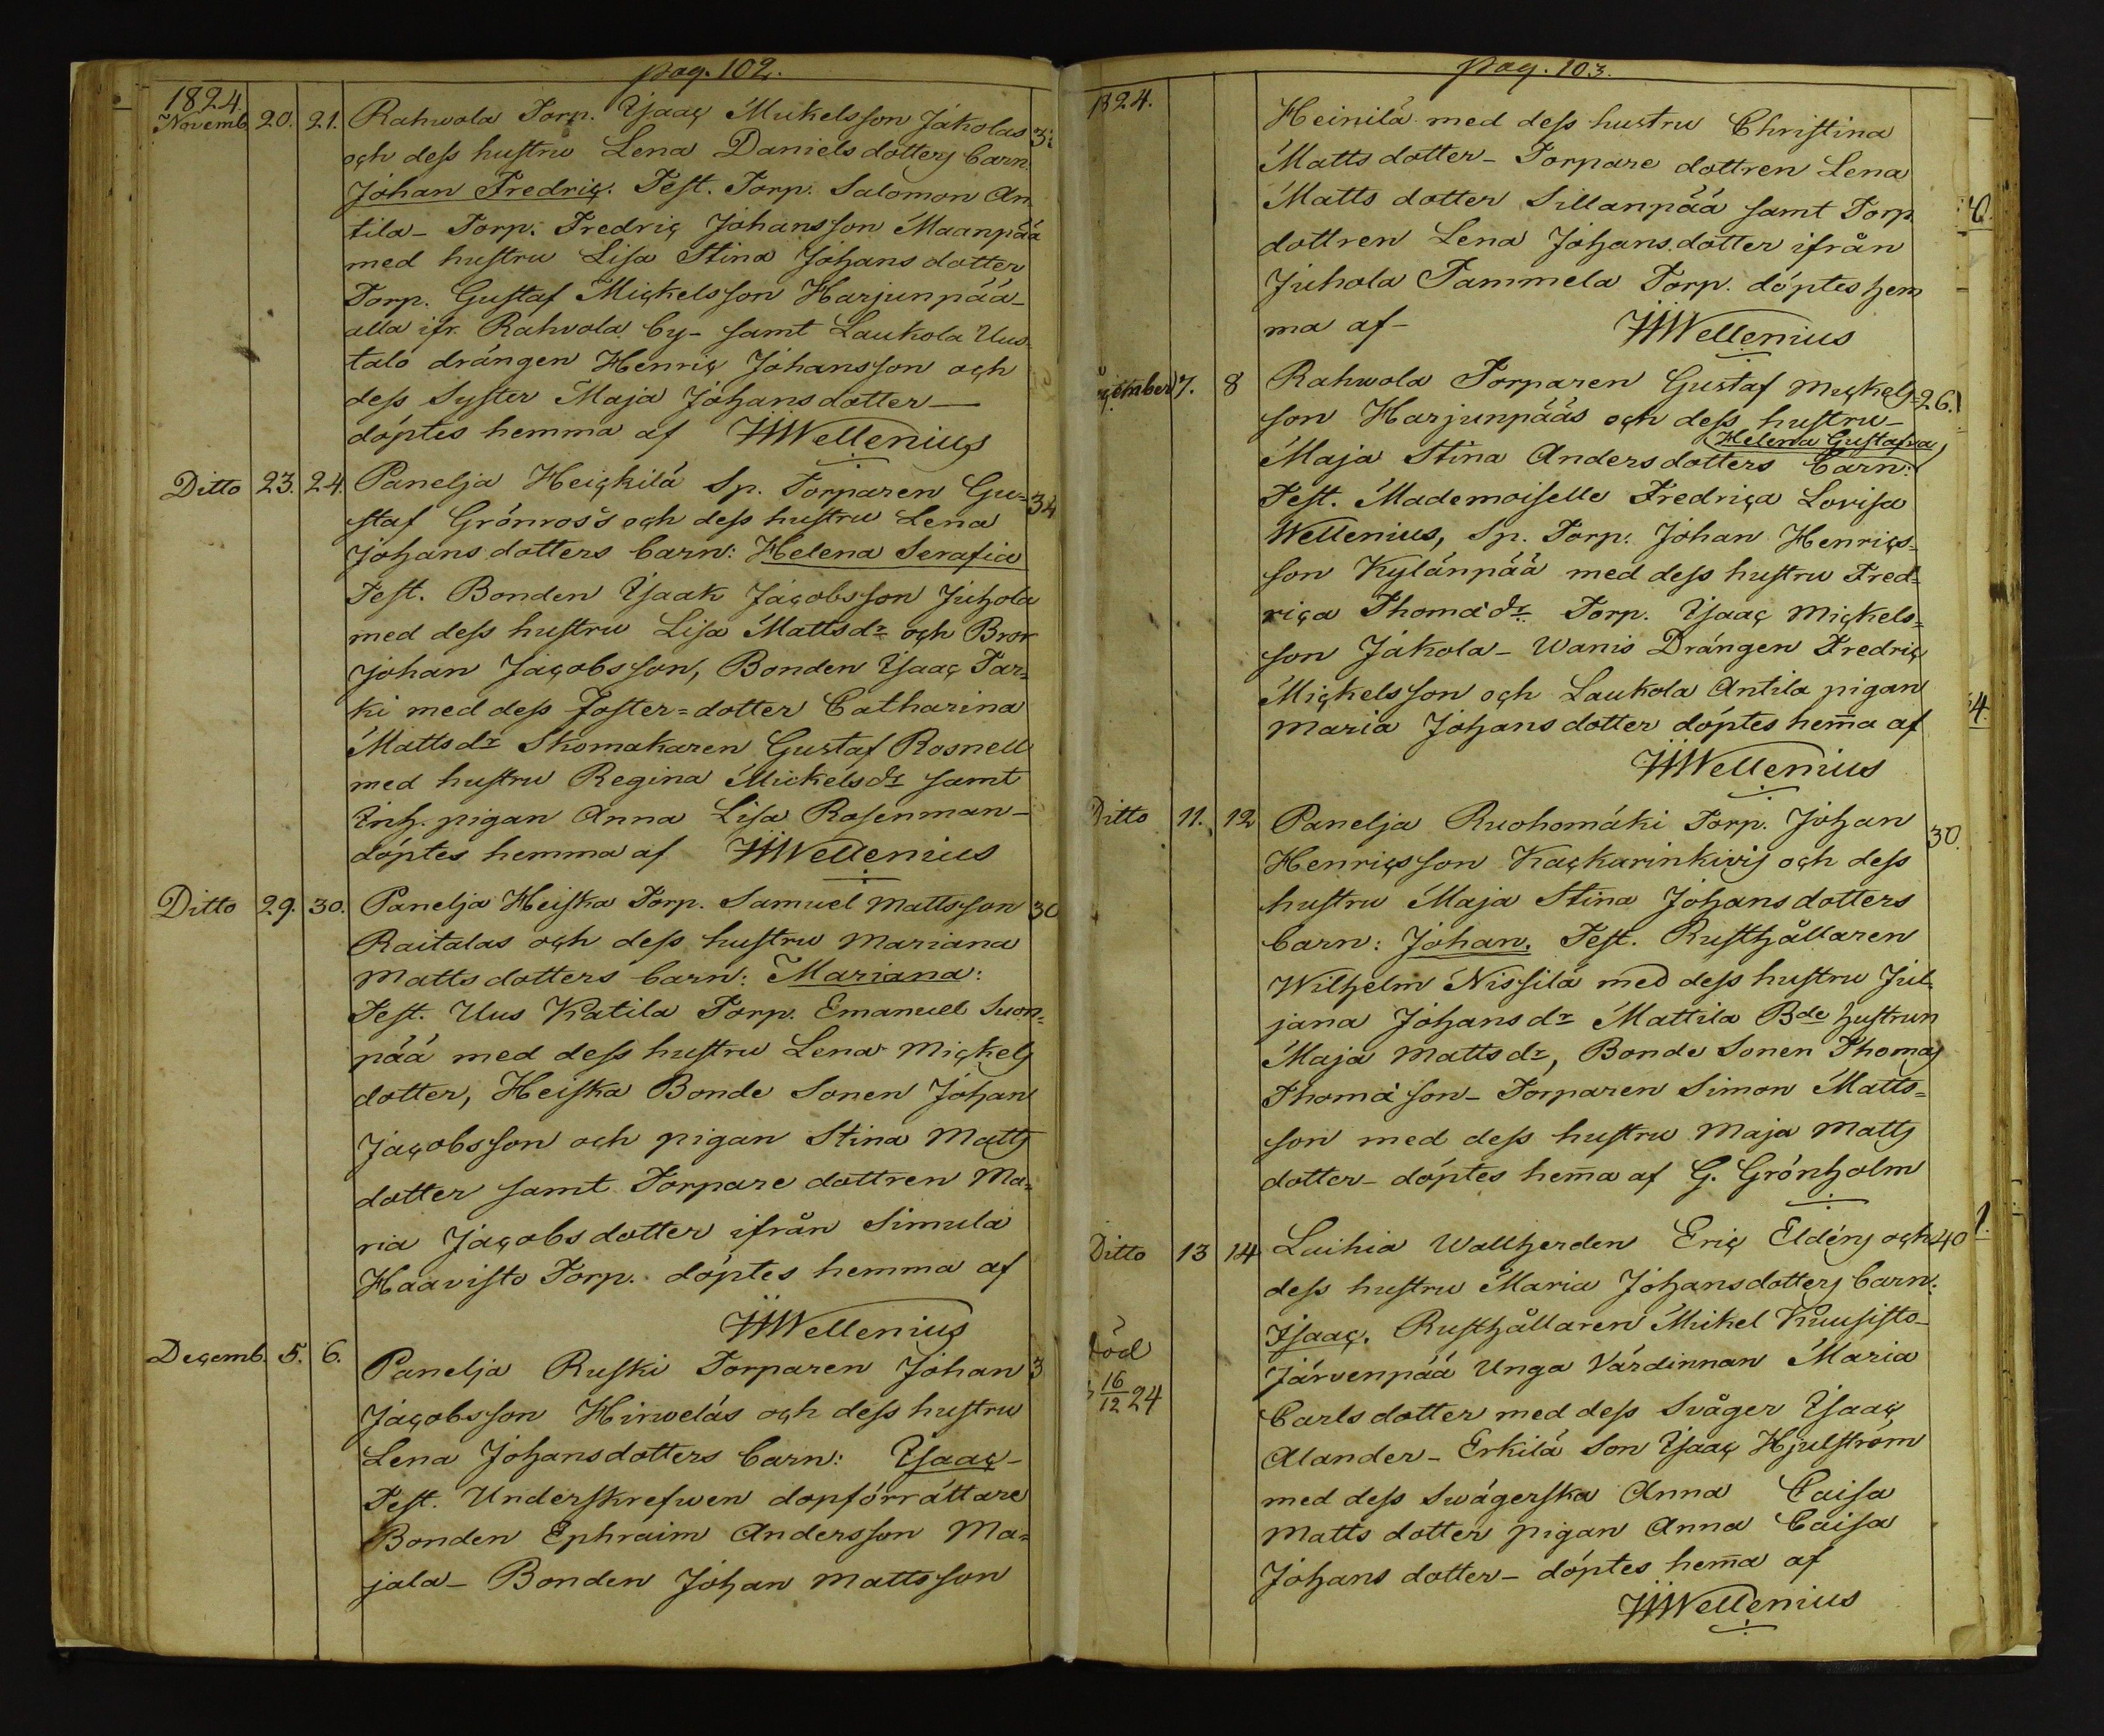 pag. 102.
1824.
Novemb. 20. 21. Rahwola Torp. Isaaç Mickelsson Jakolas
oçh dess hustru Lena Danielsdotters barn
Johan Fredriç. Test. Torp. Salomon An
tila - Torp. Fredriç Johansson Maanpää
med hustru Lisa Stina Johansdotter
Torp. Gustaf Miçkelsson Harjunpää -
alla ifr. Rahvola by - samt Laukola Uus
talo drängen Henriç Johansson oçh
dess Syster Maja Johansdotter —
döptes hemma af Wellenius
Ditto 23. 24. Panelja Heiçkilä Sp. Torparen Gu= 34
staf Grönros's oçh dess hustru Lena
Johansdotters barn: Helena Serafia
Test. Bonden Isaak Jaçobsson Juhola
med dess hustru Lisa Mattsdr oçh Bror
Johan Jaçobsson, Bonden Isaaç Tar=
ki med dess Foster=dotter Catharina
Mattsdr Skomakaren Gustaf Rosnell
med hustru Regina Mickelsdr samt
Inh. pigan Anna Lisa Rosenman -
döptes hemma af Wellenius
Ditto 29. 30. Panelja Heiska Torp. Samuel Mattsson 30
Raitalas oçh dess hustru Mariana
Mattsdotters barn: Mariana:
Test. Uus Katila Torp. Emanuel Suon=
pää med dess hustru Lena Miçkels
dotter, Heiska Bonde Sonen Johan
Jaçobsson oçh pigan Stina Matts
dotter samt Torpare dottren Ma=
ria Jaçobsdotter ifrån Simula
Haavisto Torp. döptes hemma af
Wellenius
Deçemb. 5. 6. Panelja Ruski Torparen Johan 3
Jaçobsson Hirweläs oçh dess hustru
Lena Johansdotters barn: Isaaç -
Test. Underskrefwen dopförrättare
Bonden Ephraim Andersson Ma=
jala - Bonden Johan Mattsson
pag. 103.
1824.
Heinilä med dess hustru Christina
Matts dotter - Torpare dottren Lena
Matts dotter Sillanpää samt Torp
dottren Lena Johans dotter ifrån
Juhola Tammela Torp. döptes hem
ma af - Wellenius
7. 8 Rahwola Torparen Gustaf Miçkels= 26.
son Harjunpääs oçh dess hustru -
Helena Gustafva,
Maja Stina Andersdotters barn:
Test. Mademoiselle Fredriça Lovisa
Wellenius, Sp. Torp. Johan Henriçs=
son Kylänpää med dess hustru Fred=
riça Thomädr. Torp. Isaaç Miçkels=
son Jakola - Wanis Drängen Fredriç
Miçkelsson oçh Laukola Antila pigan
Maria Johansdotter döptes hem̄a af
Wellenius
Ditto 11. 12 Panelja Ruohomäki Torp. Johan 30.
Henriçsson Kaçkurinkivis oçh dess
hustru Maja Stina Johansdotters
barn: Johan. Test. Rusthållaren
Wilhelm Nissilä med dess hustru Jul=
jana Johansdr Mattila Bde hustrun
Maja Mattsdr, Bonde Sonen Thomas
Thomä son - Torparen Simon Matts=
son med dess hustru Maja Matts
dotter - döptes hem̄a af G. Grönholm
Ditto 13 14 Luihia Wallherden Eriç Eldéns oçh 40
dess hustru Maria Johansdotters barn:
Isaaç. Rusthållaren Mickel Kuusisto -
Död
16/12 24
Järvenpää Unga Värdinnan Maria
Carlsdotter med dess Svåger Isaaç
Alander - Erkilä Son Isaaç Hjulström
med dess Swägerska Anna Caisa
Matts dotter pigan Anna Caisa
Johans dotter - döptes hem̄a af
Wellenius